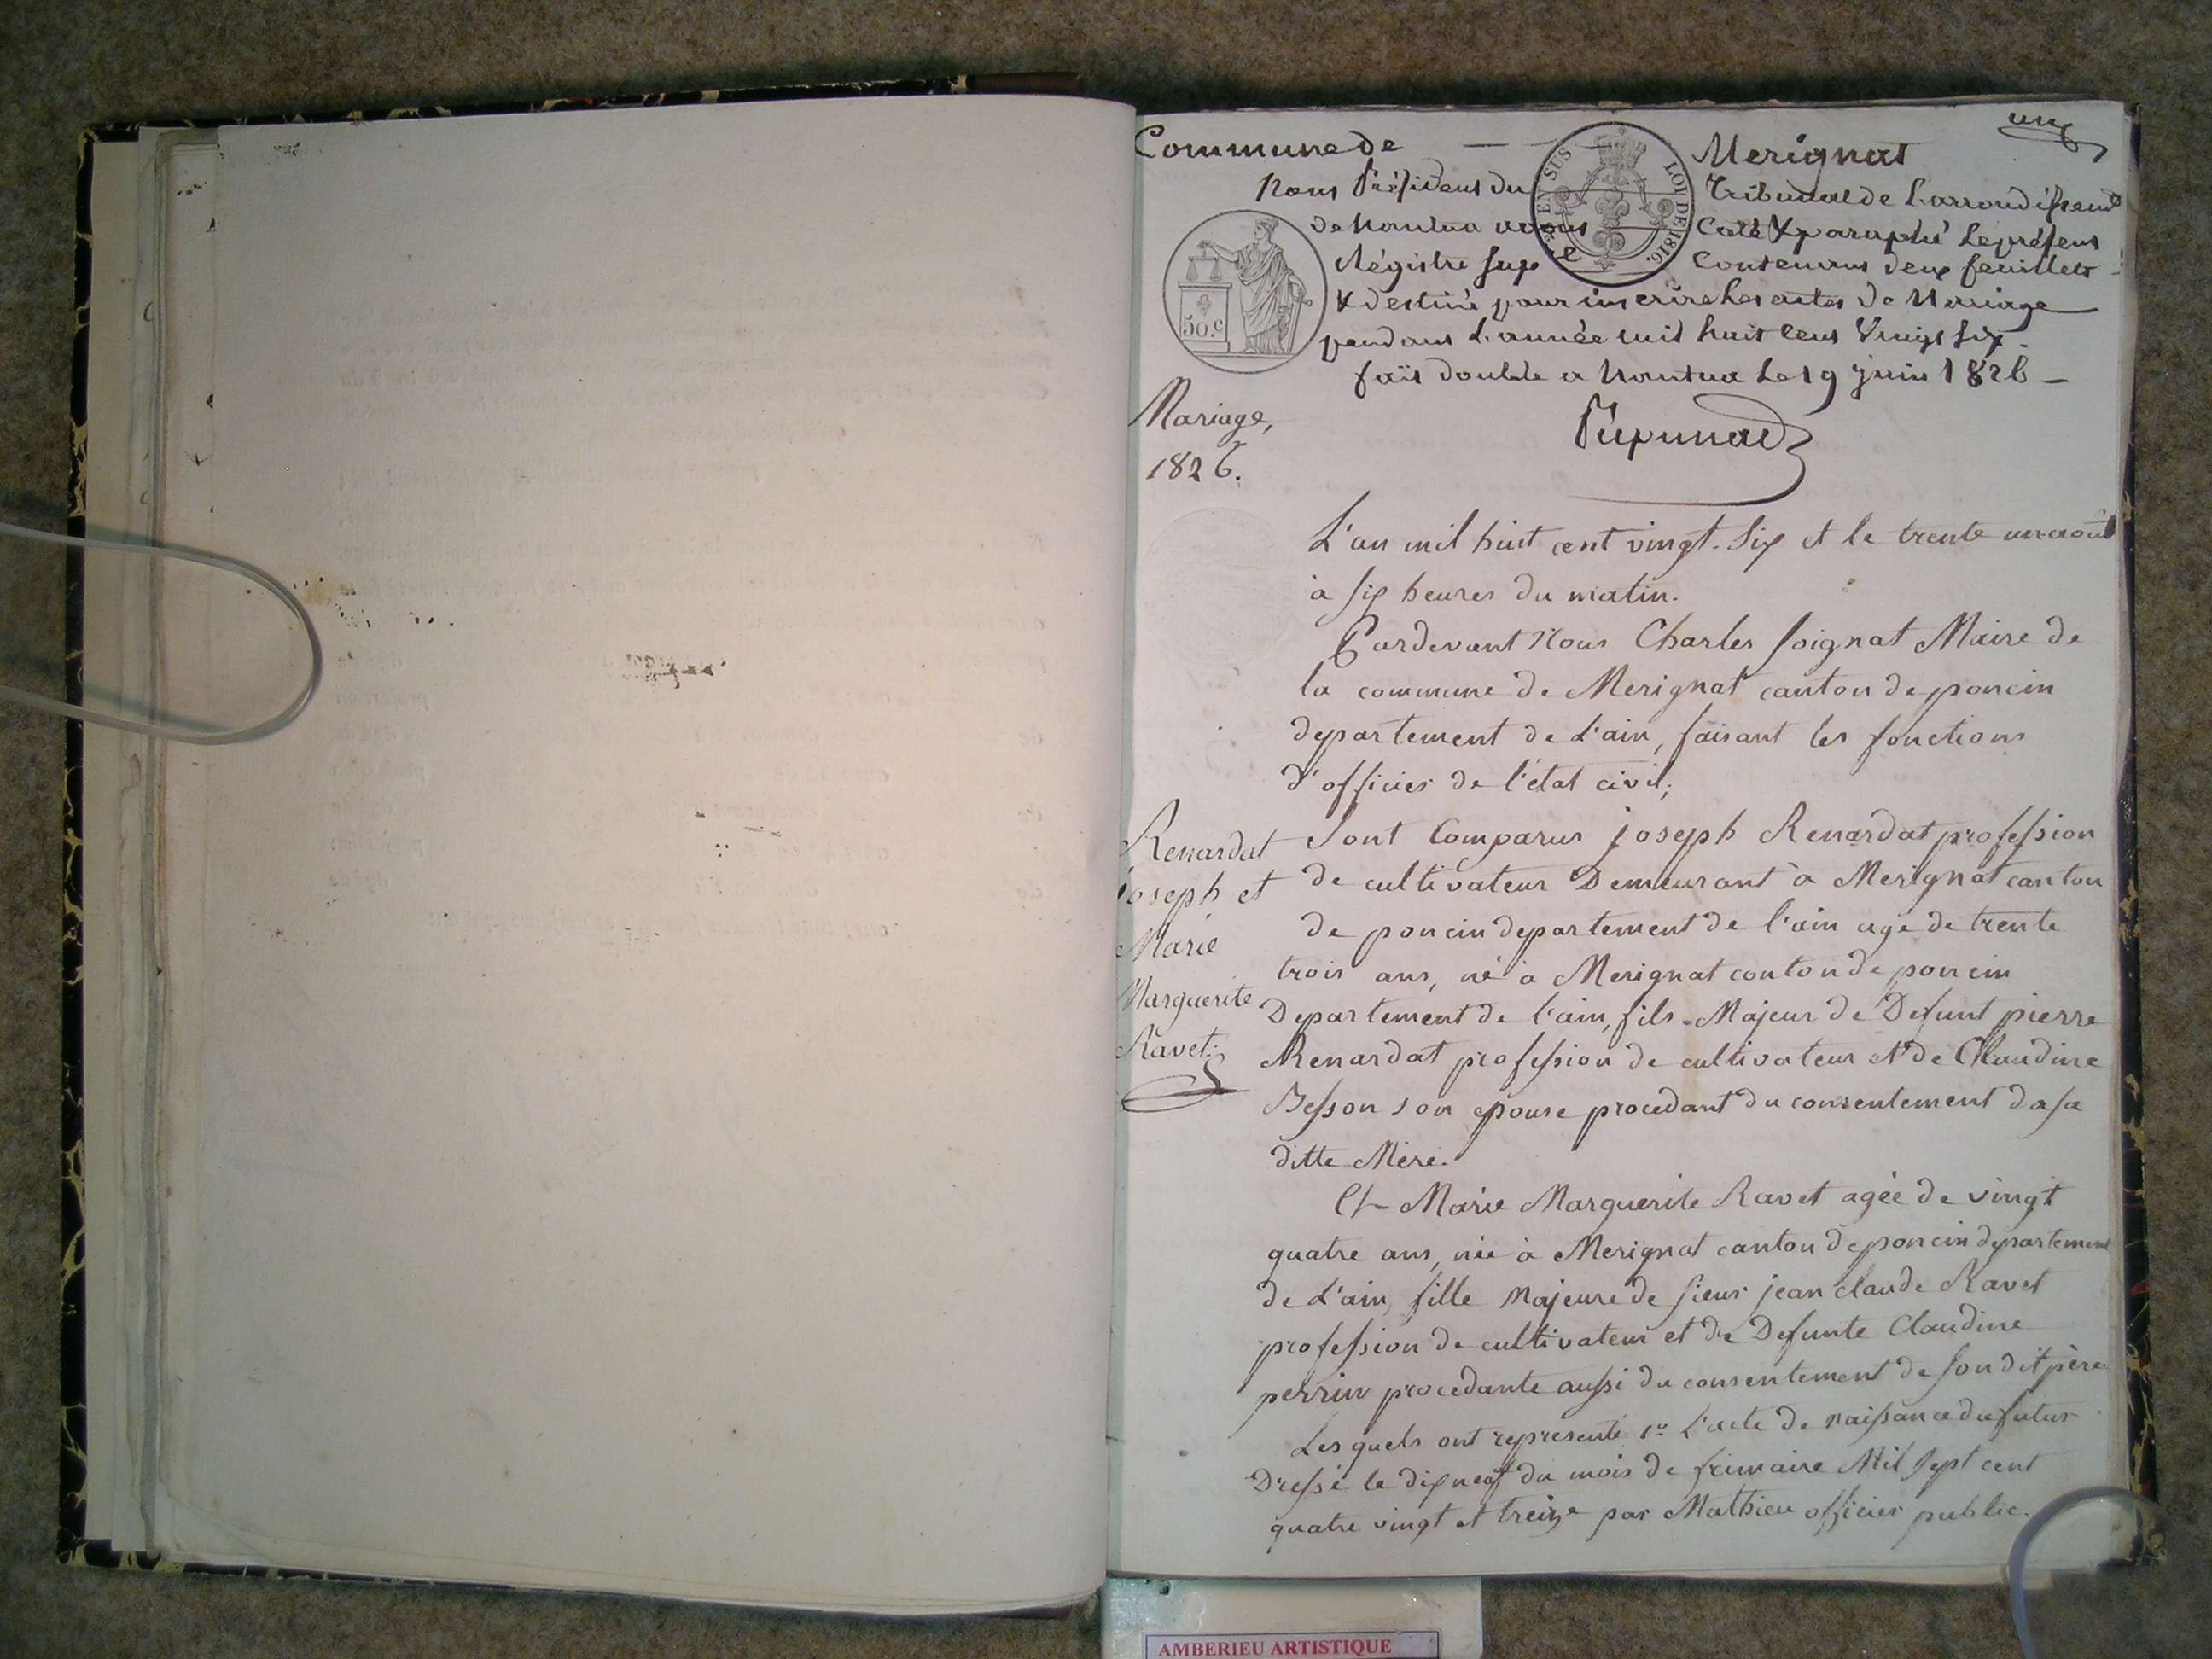 une
Commune de Merignat
Nous Président du Tribunal de L'arrondissement
de Nantua avons Coté & paraphé Le présent
Régistre sur Contenant deux feuillets
& destiné pour inscrire Les actes de Mariage
pendant L'année mil huit cent Vingt six.
fait double a Nantua Le 19 juin 1826
EN SUS
LOI DE 1816.
50.c
Mariage,
1826.
L'an mil huit cent vingt-six et le trente un aoút
à six heures du matin.
Pardevant Nous Charles Soignat Maire de
la commune de Merignat canton de poncin
departement de L'ain, faisant les fonctions
d'officier de l'état civil;
Renardat
joseph et
Marie
Marguerite
Ravet.
Sont Comparus joseph Renardat profession
de cultivateur Demeurant à Merignat canton
de poncin departement de l'ain agé de trente
trois ans, né à Merignat conton de poncin
Departement de l'ain, fils Majeur de Defunt pierre
Renardat profession de cultivateur et de Claudine
Besson son epouse procedant du consentement da sa
ditte Mère.
Et Marie Marguerite Ravet agée de vingt
quatre ans, née à Merignat canton de poncin departement
de L'ain, fille Majeure de sieur jean claude Ravet
profession de cultivateur et de Defunte Claudine
perrin procedante aussi du consentement de son dit père
Les quels ont representé 1º L'acte de naissance du futur
Dressé le dix neuf du mois de frimaire Mil Sept cent
quatre vingt et treize par Mathieu officier public.
AMBERIEU ARTISTIQUE